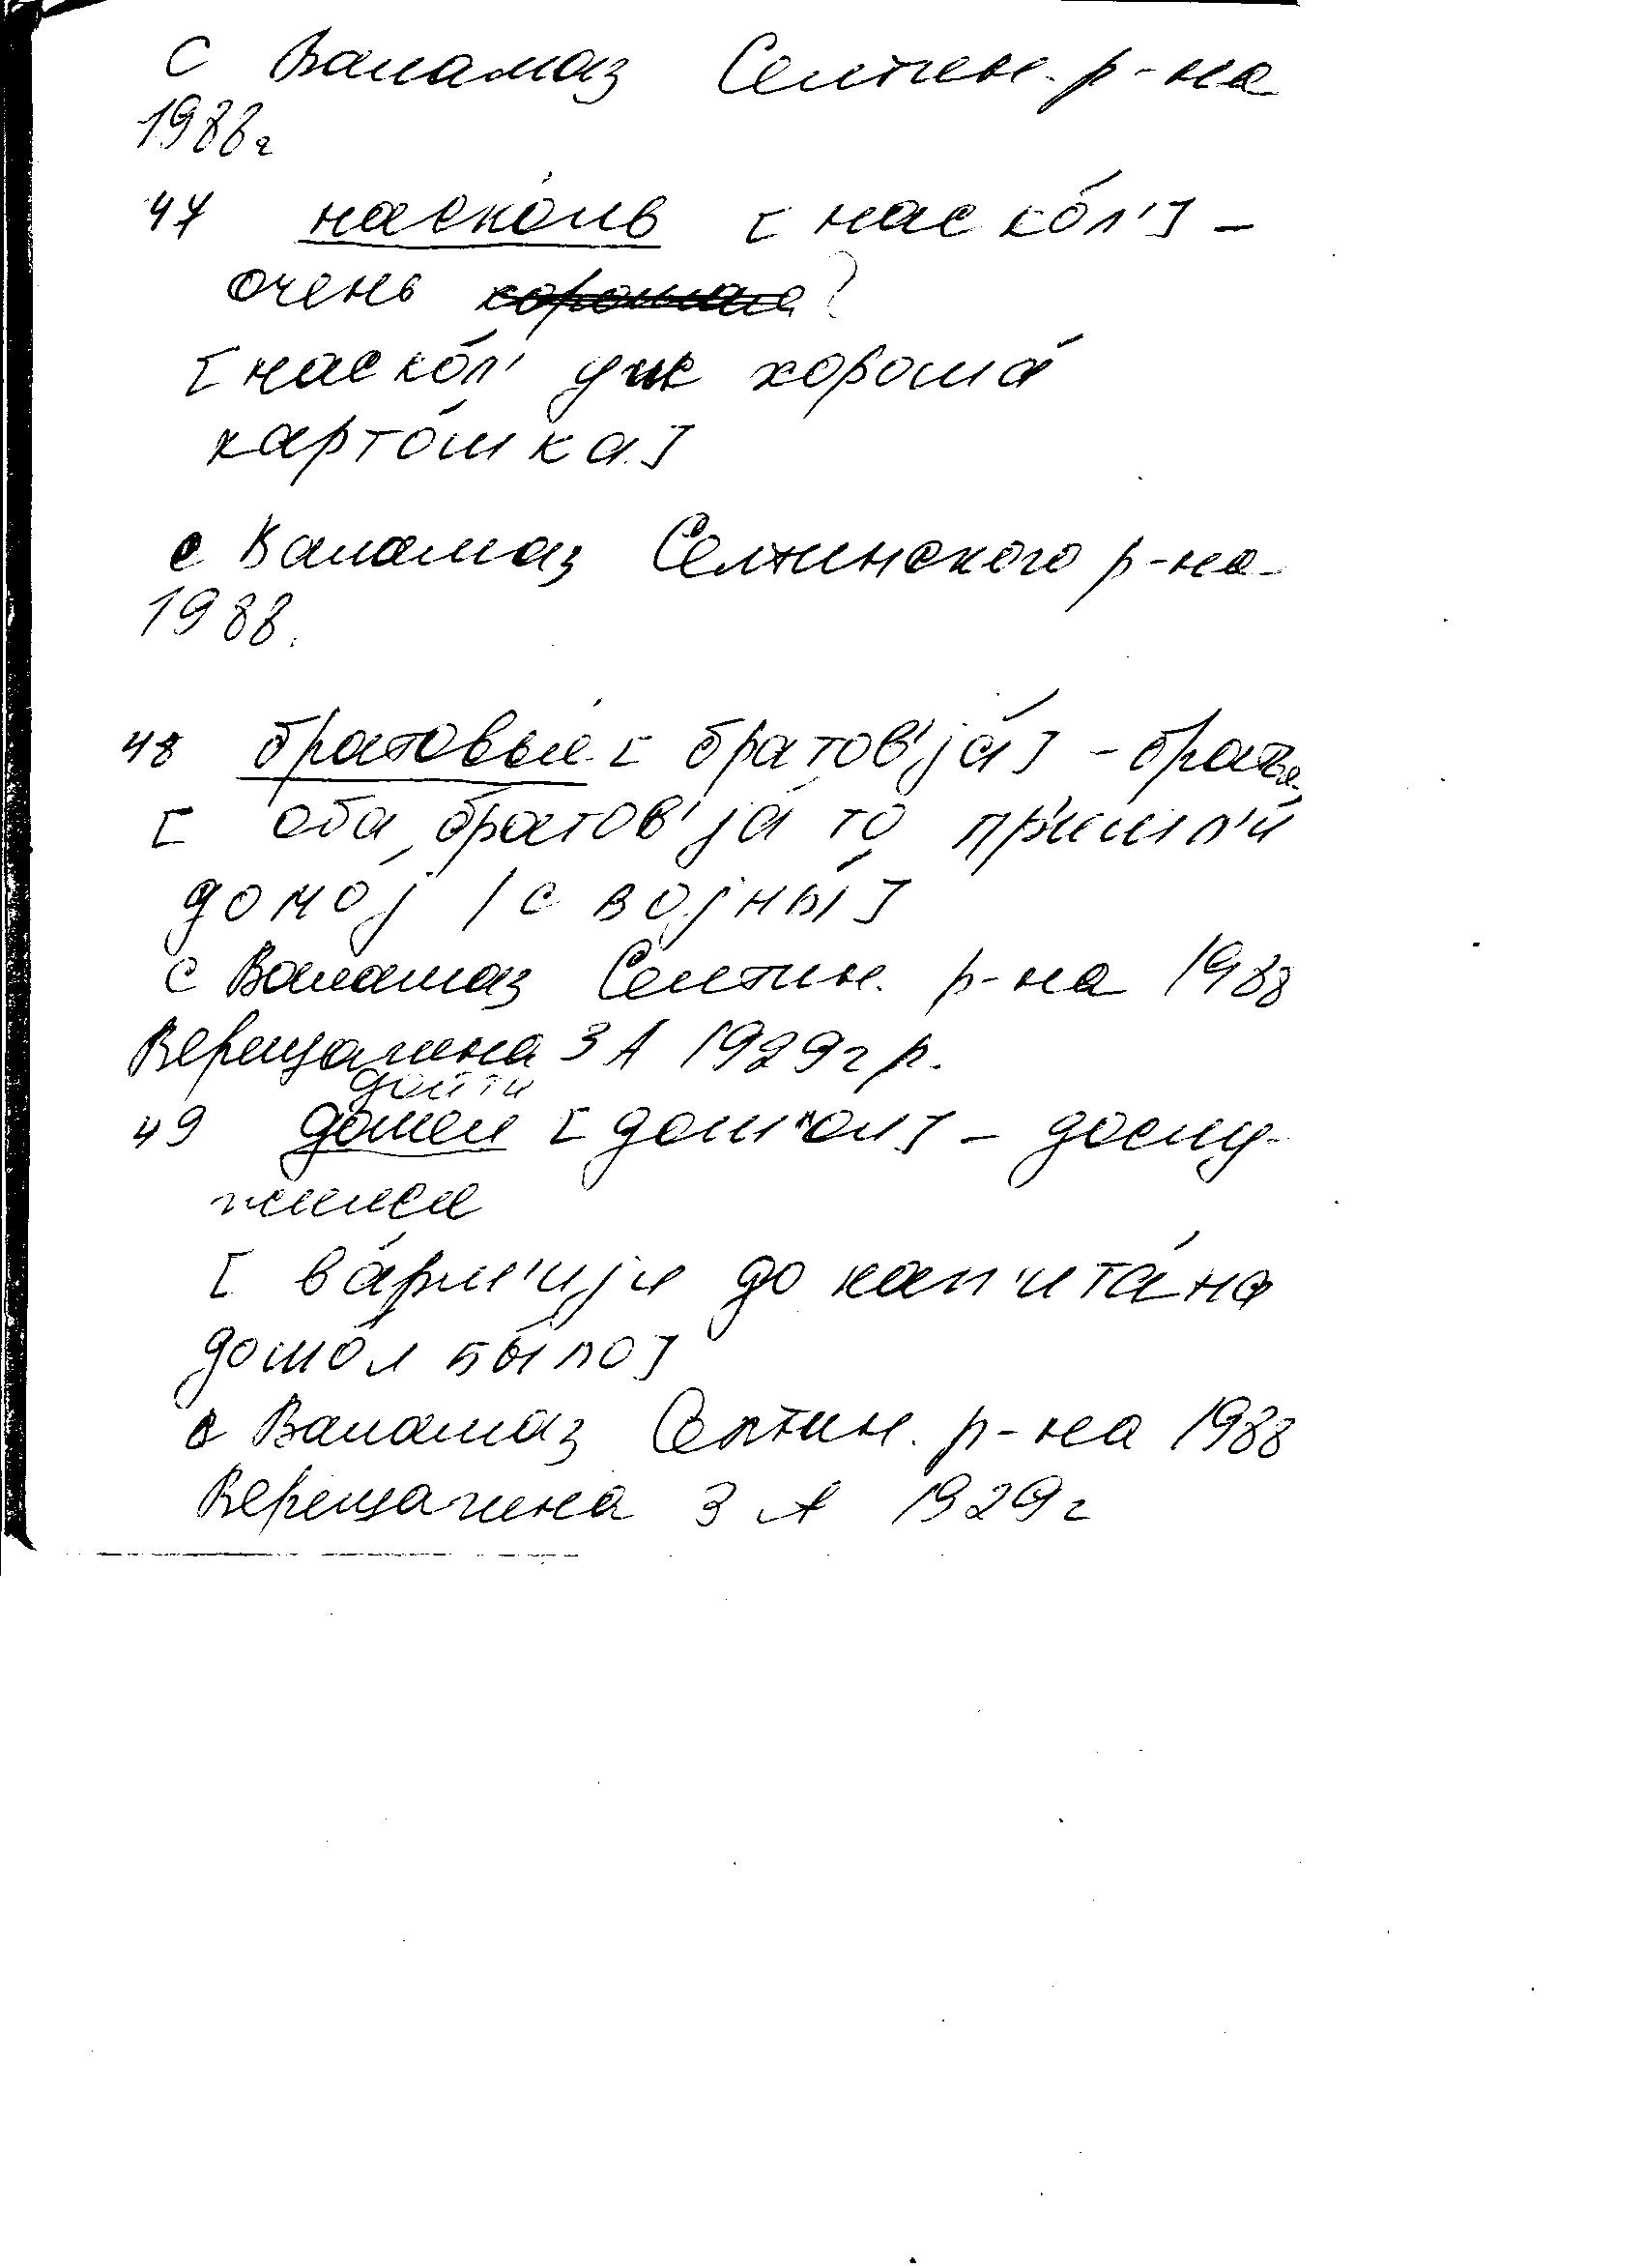 С Валамаз Селтин. р-на
1988г
47 насколь [наско́л'] –
очень хорошая?
[наско́л' уж хороша́
карто́шка]
с Валамаз Селтинского р-на
1988.
48 братовья́ [братов'jа́] – братья
[оба братов'jа́ то пр'ишл'и́
домо́j / с воjны́]
с Валамаз Селтин. р-на 1988
Верещагина З А 1929г р.
дойти
49 дошел [дошо́л] – дослу-
жился
[ва́рм'иjи до кап'ита́на
дошо́л было]
с Валамаз Селтин. р-на 1988
Верещагина З А 1929г